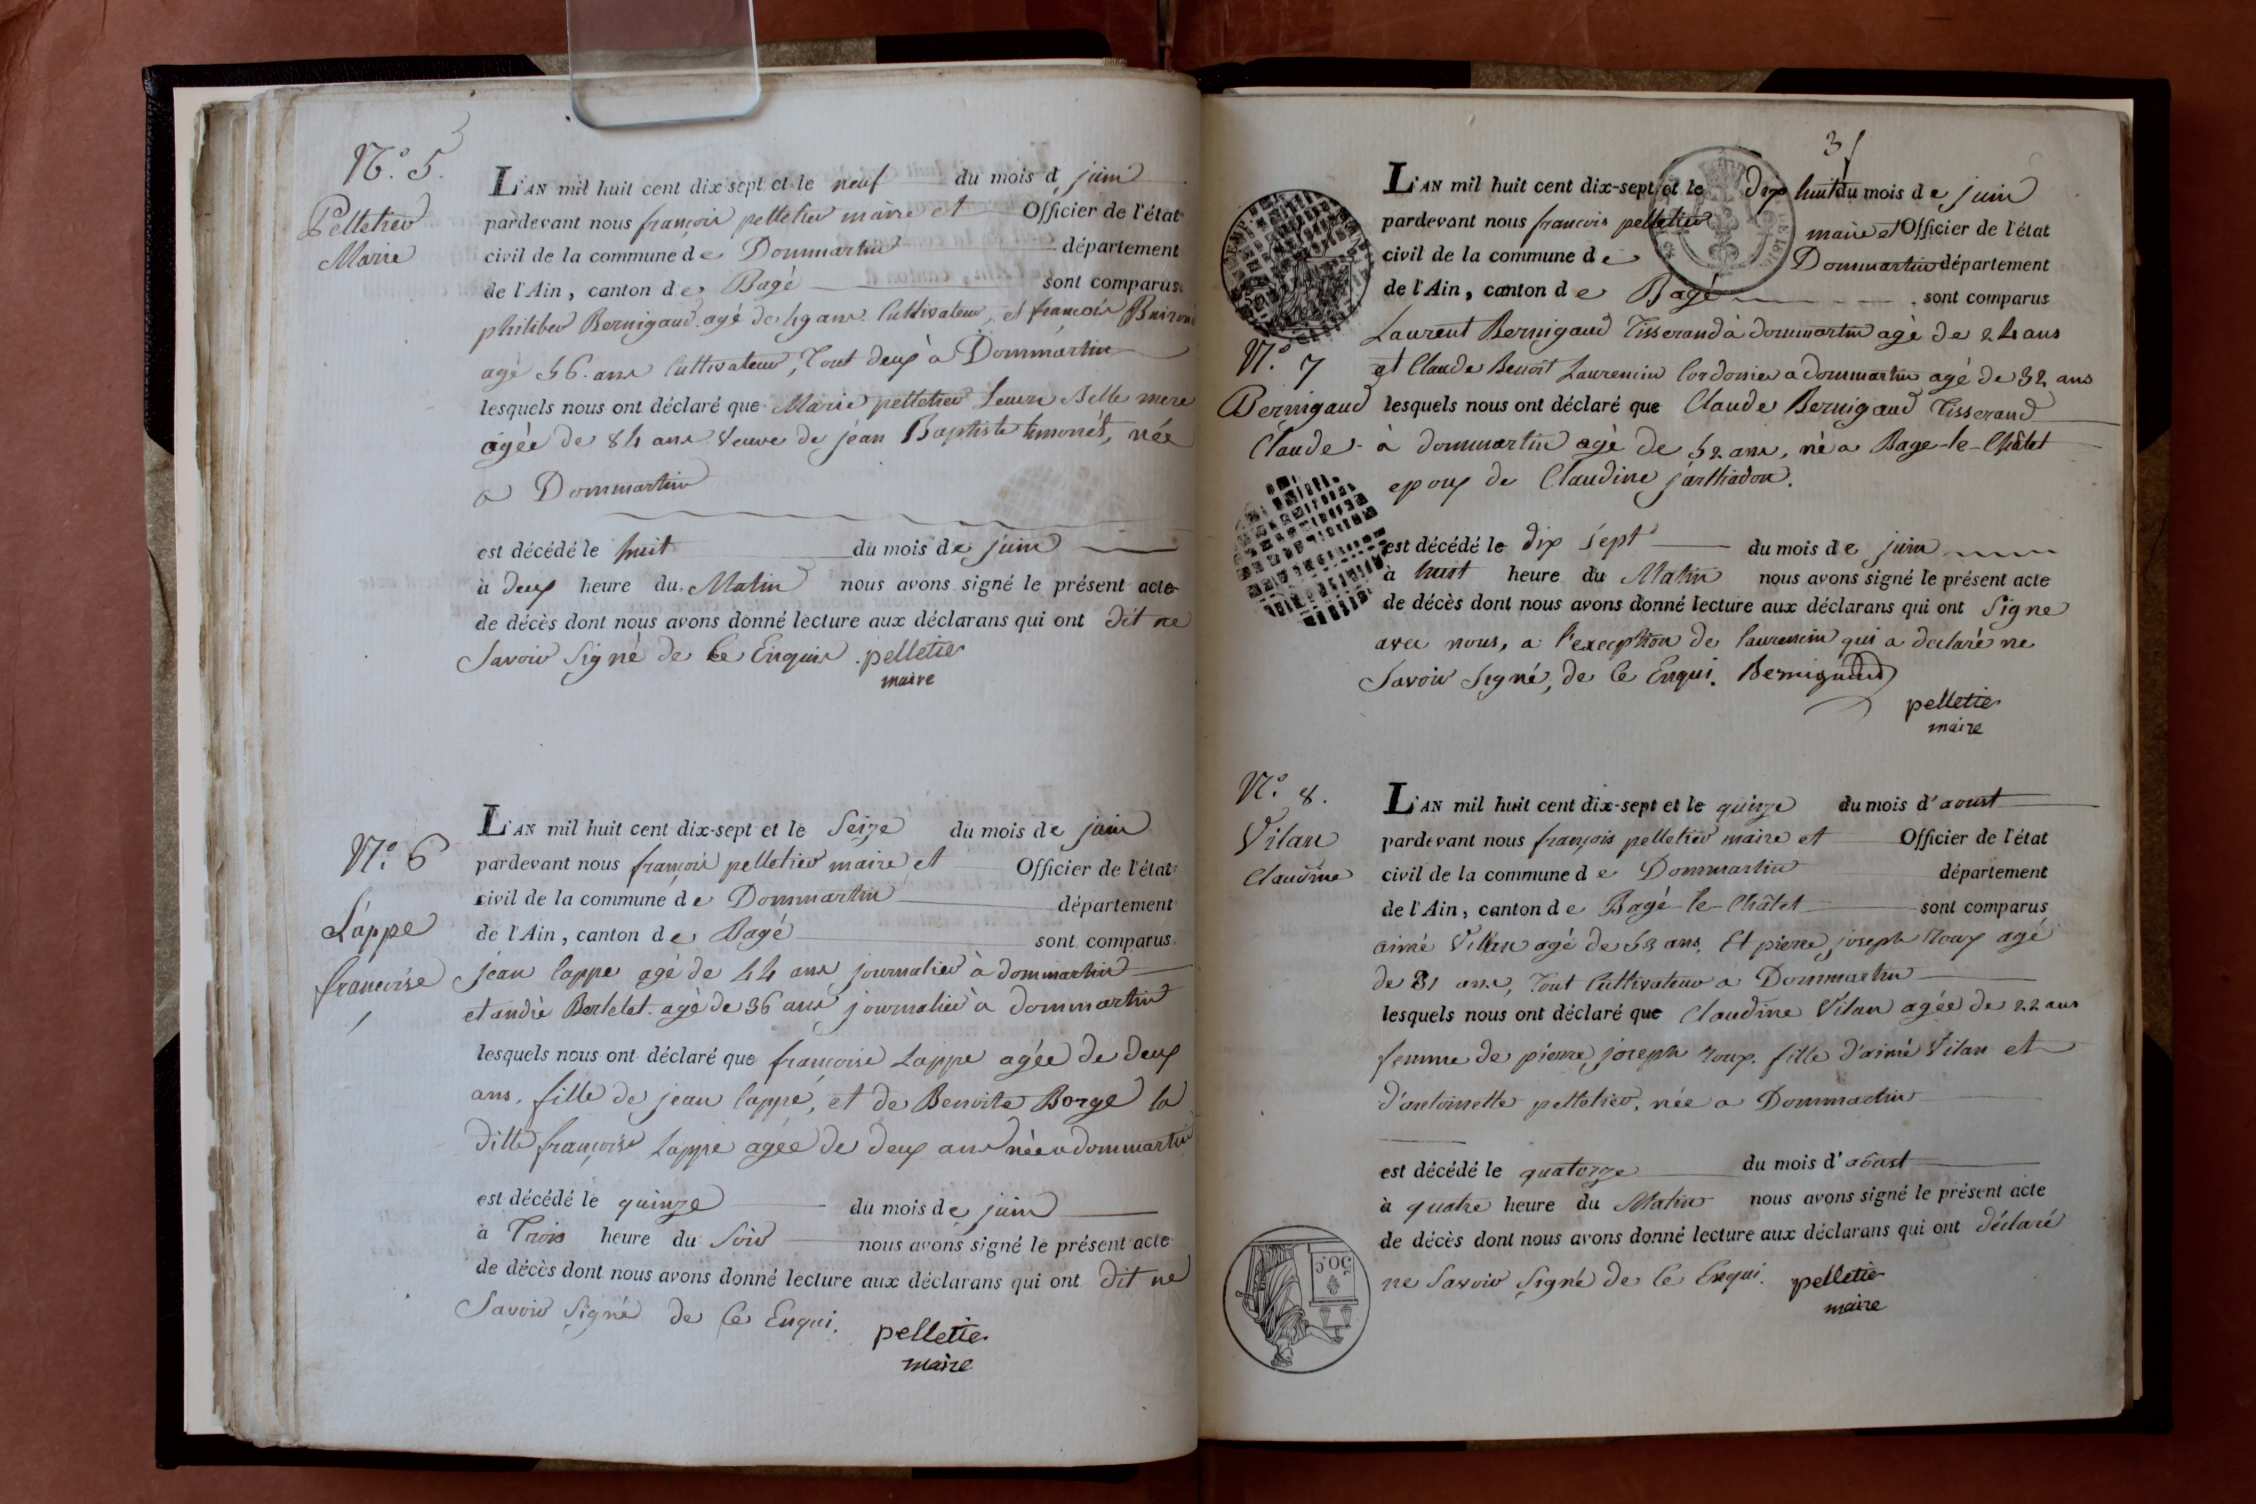 N.° 5.
Pelletier
Marie
L'AN mil huit cent dix sept et le neuf du mois d juin
pardevant nous françois pelletier maire et Officier de l'état
civil de la commune de Dommartin département
de l'Ain, canton de Bagé sont comparus
philiber Bernigaud agé de 49 ans Cultivateur, et françois
agé 56 ans Cultivateur, Tout deux à Dommartin
lesquels nous ont déclaré que Marie pelletier Leurs Belle mere
agée de 84 ans Veuve de jean Baptiste née
a Dommartin
est décédé le huit du mois de juin
à deux heure du Matin nous avons signé le présent acte
de décès dont nous avons donné lecture aux déclarans qui ont dit ne
Savoir Signé de Ce Enquis pelletier
maire
N.° 6
Lappe
francoise
L'AN mil huit cent dix-sept et le Seize du mois de juin
pardevant nous françois pelletier maire et Officier de l'état
civil de la commune de Dommartin département
de l'Ain, canton de Bagé sont comparus
jean lappe agé de 44 ans journalier à dommartin
et andré Bertelet agé de 36 ans journalier à dommartin
lesquels nous ont déclaré que francoise Lappe agée de deux
ans, fille de jean lappe, et de Benoite Borge la
ditte françoise Lappe agée de deux ans née a dommartin
est décédé le quinze du mois de juin
à Trois heure du Soir nous avons signé le présent acte
de décès dont nous avons donné lecture aux déclarans qui ont dit ne
Savoir Signé de Ce Enqui. pelletier
maire
3
N.° 7
Bernigaud
Claude
L'AN mil huit cent dix-sept et le dix huit du mois de juin
pardevant nous francois pelletier maire et Officier de l'état
civil de la commune de Dommartin département
de l'Ain, canton de Bagé sont comparus
Laurent Bernigaud Tisserand à dommartin agé de 24 ans
et Claude Benoit Laurencin Cordonier a dommartin agé de 32 ans
lesquels nous ont déclaré que Claude Bernigaud Tisserand
à dommartin agé de 52 ans, né a Bage-le-Châtel
epoux de Claudine jarthadon.
est décédé le dix sept du mois de juin
à huit heure du Matin nous avons signé le présent acte
de décès dont nous avons donné lecture aux déclarans qui ont Signe
avec nous, a l'exception de laurencin qui a declaré ne
Savoir Signé, de Ce Enqui. Bernigaud
pelletier
maire
N.° 8.
Vilan
Claudine
L'AN mil huit cent dix-sept et le quinze du mois d'aoust
pardevant nous françois pelletier maire et Officier de l'état
civil de la commune de Dommartin département
de l'Ain, canton de Bagé-le-Châtel sont comparus
aimé Vilan agé de 53 ans, Et pierre joseph Roux agé
de 31 ans, Tout Cultivateur a Dommartin
lesquels nous ont déclaré que Claudine Vilan agée de 22 ans
femme de pierre joseph roux, fille d'aimé Vilan et
d'antoinette pelletier, née a Dommartin
est décédé le quatorze du mois d'aoust
à quatre heure du Matin nous avons signé le présent acte
de décès dont nous avons donné lecture aux déclarans qui ont déclaré
ne Savoir Signé de Ce Enqui. pelletier
maire
50C